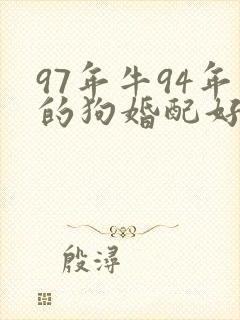 97年牛94年
的狗婚配好
殷浔